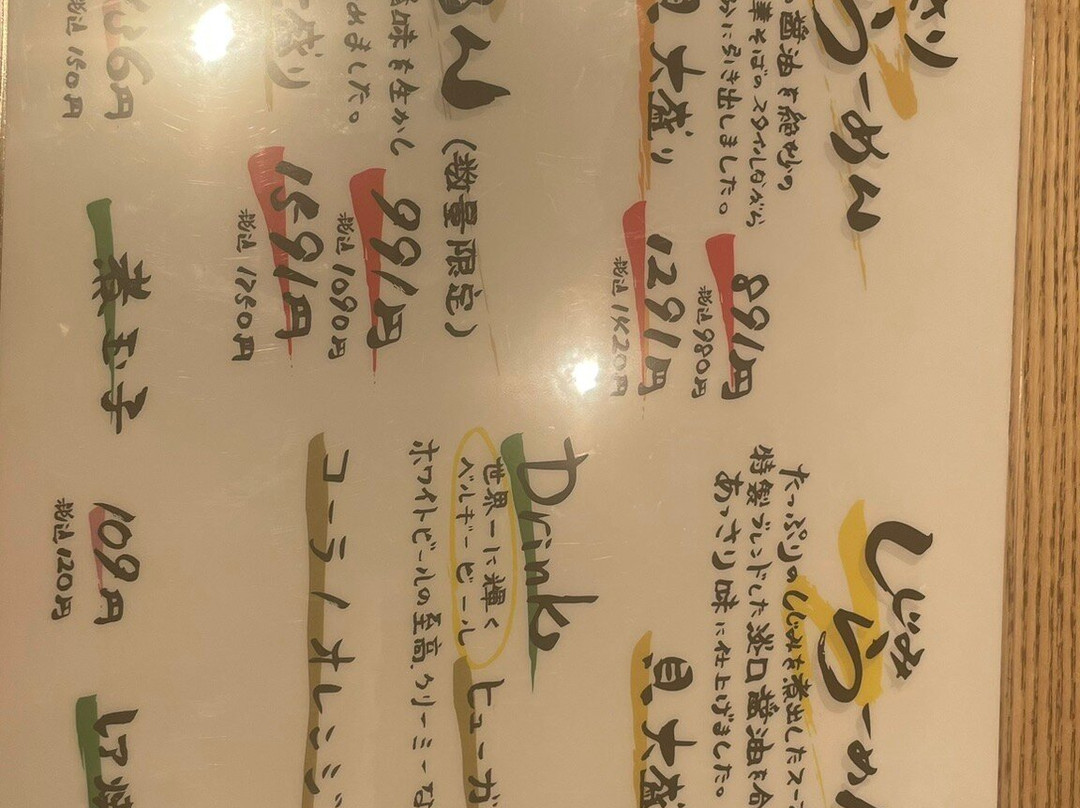 らーめん
醤油を絶妙の
華そばのスタイルながら
かに引き出しました。
891円
税込980円
貝大盛り
1291円
税込1420円
(数量限定)
味を生かし
めました。
991円
税込1090円
盛り
1591円
税込1750円
136円
税込150円
煮玉子
109円
税込120円
しじみ
らーめん
たっぷりのしじみを煮出したスー
特製ブレンドした淡口醤油を合
あっさり味に仕上げました。
貝大盛
Drink
世界一に輝く
ベルギービール
ヒューガ
ホワイトビールの至高、クリーミーな
コーラ/オレンジ
レア